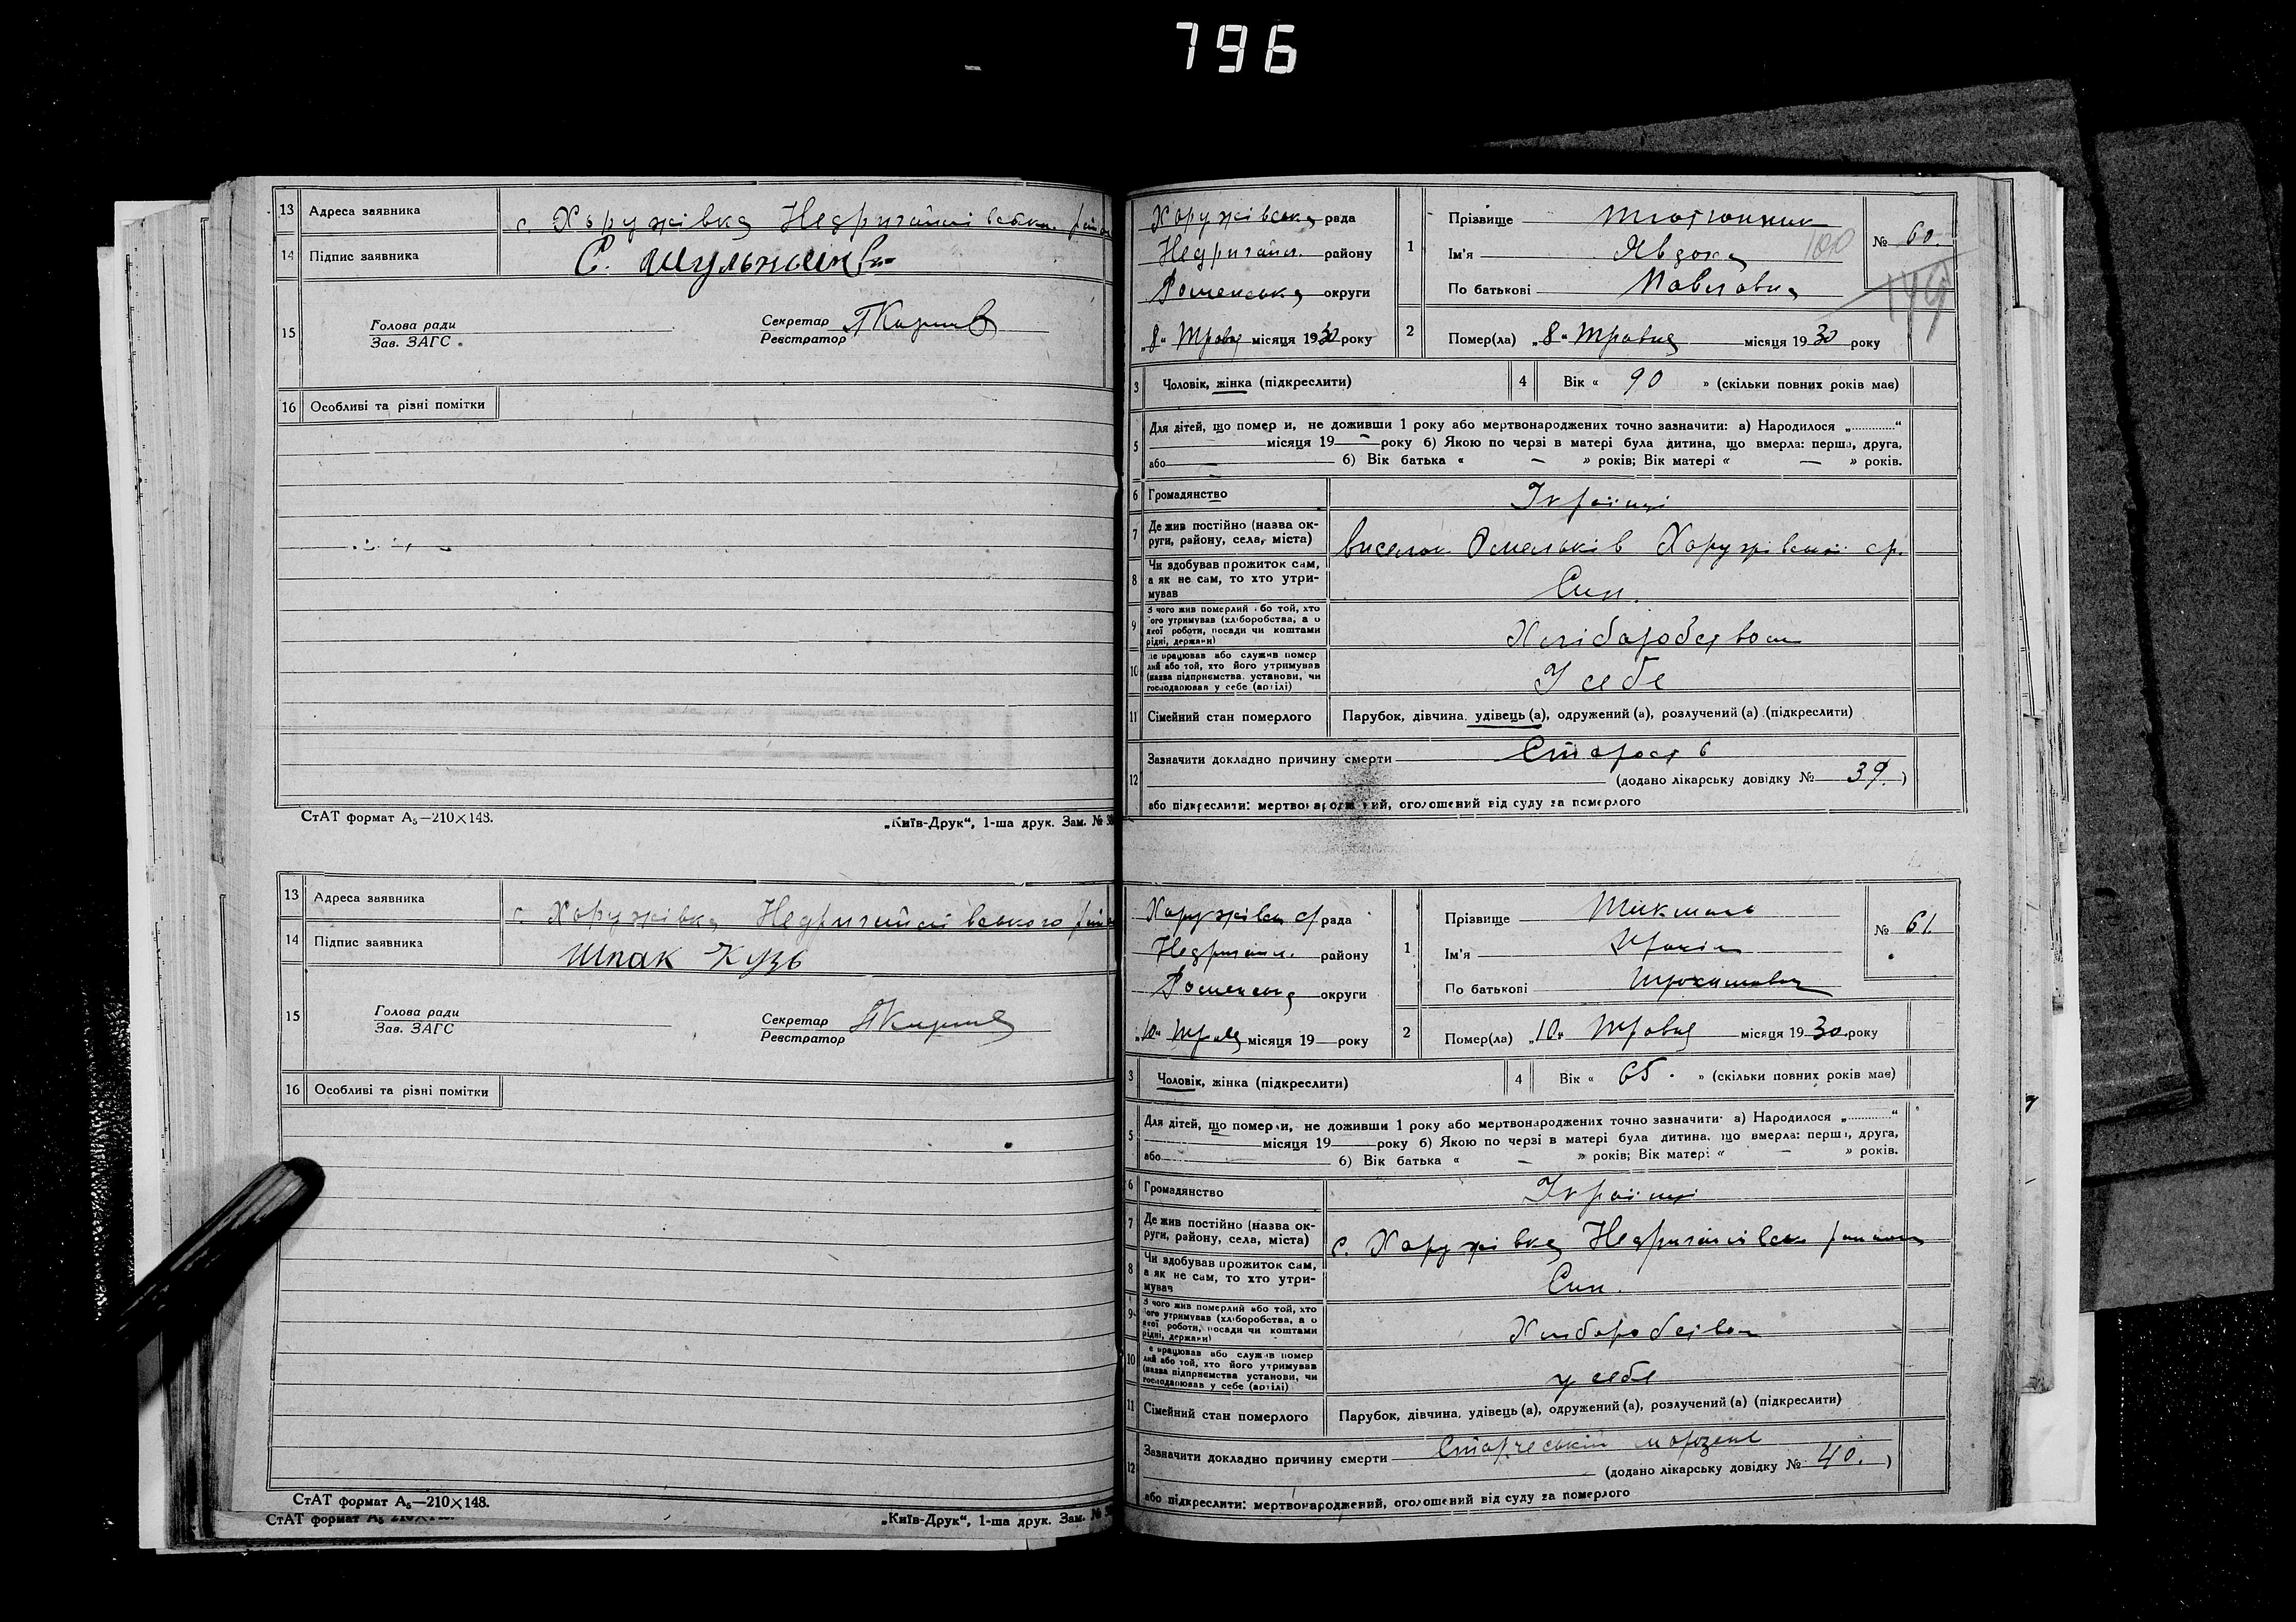 796
13 Адреса заявника с. Хоружівка Недригайлівськ.
14 Підпис заявника С.
15 Голова ради
Зав. ЗАГС
Секретар
Реєстратор
16 Особливі та різні помітки
СтАТ формат А₅—210×148.
„Київ-Друк“, 1-ша друк. Зам. №
13 Адреса заявника с. Хоружівка Недригайлівського
14 Підпис заявника Шпак Кузь
15 Голова ради
Зав. ЗАГС
Секретар
Реєстратор
16 Особливі та різні помітки
СтАТ формат А₅—210×148.
СтАТ формат
„Київ-Друк“, 1-ша друк. Зам. №
Хоружівська рада
Недригайл. району
Роменська округи
„8“ Травня місяця 1930 року
1 Прізвище Тютюнник
Ім'я Явдоха 100
По батькові Павловна
№ 60.
2 Помер(ла) „8“ Травня місяця 1930 року
3 Чоловік, жінка (підкреслити)
4 Вік « 90 » (скільки повних років має)
5 Для дітей, що померли, не доживши 1 року або мертвонароджених точно зазначити: а) Народилося „............“
місяця 19— року б) Якою по черзі в матері була дитина, що вмерла: перша, друга,
або — б) Вік батька « — » років; Вік матері « — » років.
6 Громадянство Україн
7 Де жив постійно (назва ок-
руги, району, села, міста) виселок Омельків Хоружівської с.р.
8 Чи здобував прожиток сам,
а як не сам, то хто утри-
мував Син.
9 З чого жив померлий або той, хто
його утримував (хліборобства, а о
якої роботи, посади чи коштами
рідні, держави) Хліборобством
10 Де працював або служив помер
лий або той, хто його утримував
(назва підприємства, установи, чи
господарював у себе (артілі) У себе
11 Сімейний стан померлого Парубок, дівчина, удівець (а), одружений (а), розлучений (а) (підкреслити)
12 Зазначити докладно причину смерти Старость
(додано лікарську довідку № 39.)
або підкреслити: мертвонароджений, оголошений від суду за померлого
Хоружівськ с/рада
Недригайл. району
Роменська округи
„10“ Травня місяця 19— року
1 Прізвище
Ім'я
По батькові
№ 61.
2 Помер(ла) „10“ Травня місяця 1930 року
3 Чоловік, жінка (підкреслити)
4 Вік « 65 » (скільки повних років має)
5 Для дітей, що померли, не доживши 1 року або мертвонароджених точно зазначити: а) Народилося „............“
місяця 19— року б) Якою по черзі в матері була дитина, що вмерла: перша, друга,
або — б) Вік батька « — » років; Вік матері « — » років.
6 Громадянство Україн
7 Де жив постійно (назва ок-
руги, району, села, міста) с. Хоружівка Недригайлівськ району
8 Чи здобував прожиток сам,
а як не сам, то хто утри-
мував Син.
9 З чого жив померлий або той, хто
його утримував (хліборобства, а о
якої роботи, посади чи коштами
рідні, держави) Хліборобством
10 Де працював або служив помер
лий або той, хто його утримував
(назва підприємства, установи, чи
господарював у себе (артілі) у себе
11 Сімейний стан померлого Парубок, дівчина, удівець (а), одружений (а), розлучений (а) (підкреслити)
12 Зазначити докладно причину смерти
(додано лікарську довідку № 40.)
або підкреслити: мертвонароджений, оголошений від суду за померлого